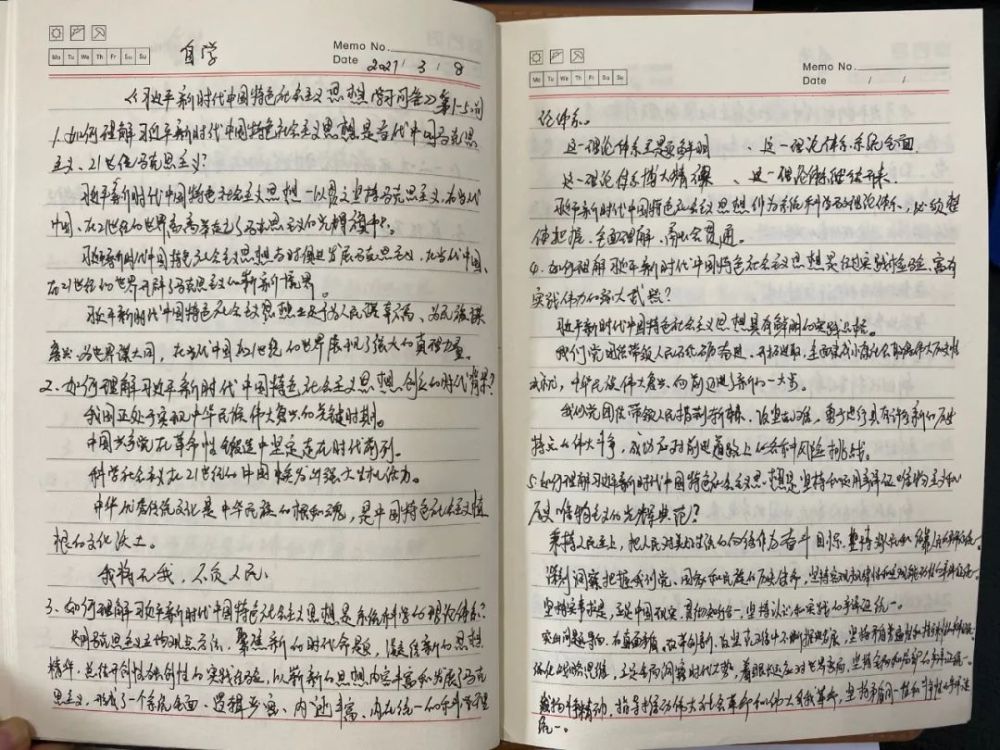 Mo Tu We Th Fr Sa Su
自学
Memo No.
Date 2021 / 3 / 8
《习近平新时代中国特色社会主义思想学习问答》第1-5问
1.如何理解习近平新时代中国特色社会主义思想是当代中国马克思
主义、21世纪马克思主义?
习近平新时代中国特色社会主义思想一以贯之坚持马克思主义,在当代
中国、在21世纪的世界高高举起了马克思主义的光辉旗帜。
习近平新时代中国特色社会主义思想与时俱进发展马克思主义,在当代中国、
在21世纪的世界开辟了马克思主义的崭新境界。
习近平新时代中国特色社会主义思想立足为人民谋幸福、为民族谋
复兴、为世界谋大同,在当代中国在21世纪的世界展现了强大的真理力量。
2.如何理解习近平新时代中国特色社会主义思想创立的时代背景?
我国正处于实现中华民族伟大复兴的关键时期。
中国共产党在革命性锻造中坚定走在时代前列。
科学社会主义在21世纪的中国焕发出强大生机活力。
中华优秀传统文化是中华民族的根和魂,是中国特色社会主义植
根的文化沃土。
我将无我,不负人民。
3.如何理解习近平新时代中国特色社会主义思想是系统科学的理论体系?
运用马克思主义立场观点方法,聚焦新的时代命题,凝结新的思想
精华,总结开创性独创性的实践经验,以崭新的思想内容丰富和发展马克
思主义,形成了一个系统全面、逻辑严密、内涵丰富、内在统一的科学理
Mo Tu We Th Fr Sa Su
Memo No.
Date / /
论体系。
这一理论体系主题鲜明、这一理论体系系统全面
这一理论体系博大精深、这一理论体系继往开来
习近平新时代中国特色社会主义思想作为系统科学的理论体系,必须整
体把握、全面理解、融会贯通。
4.如何理解习近平新时代中国特色社会主义思想是经过实践检验、富有
实践伟力的强大武器?
习近平新时代中国特色社会主义思想具有鲜明的实践品格。
我们党团结带领人民砥砺奋进、开拓进取,全面建成小康社会取得伟大历史性
成就,中华民族伟大复兴向前迈进了新的一大步。
我们党团结带领人民披荆斩棘、攻坚克难,勇于进行具有许多新的历史
特点的伟大斗争,成功应对前进道路上的各种风险挑战。
5.如何理解习近平新时代中国特色社会主义思想是坚持和运用辩证唯物主义和
历史唯物主义的光辉典范?
秉持人民至上,把人民对美好生活的向往作为奋斗目标,坚持
深刻洞察把握我们党、国家和民族的历史使命,坚持
坚持实事求是,立足中国现实,坚持认识和实践的辩证统一。
突出问题导向,在直面矛盾、改革创新、攻坚克难中不断推进发展,坚持
强化战略思维,立足全局洞察时代大势,着眼长远应对世界变局,坚持
发扬斗争精神,指导推动伟大社会革命和伟大自我革命,坚持
统一。